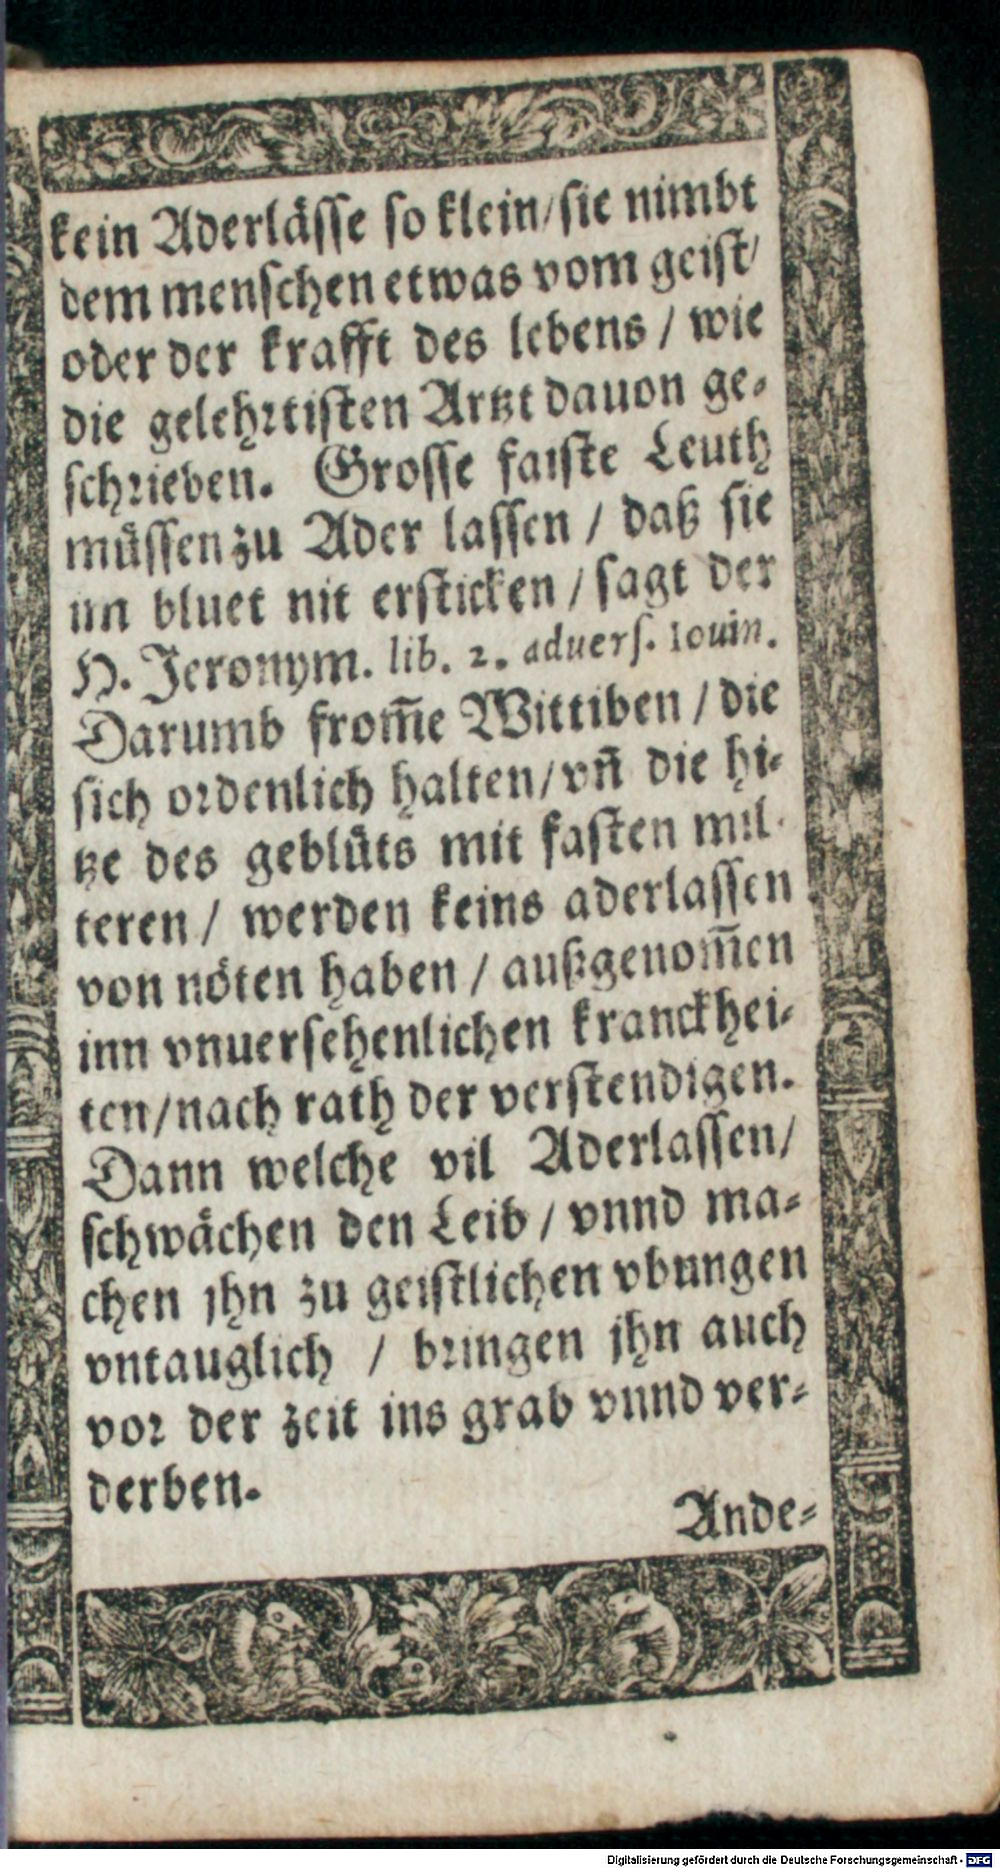 kein Aderlässe so klein/sie nimbt
dem menschen etwas vom geist/
oder der krafft des lebens / wie
die gelehrtisten Artzt dauon ge-
schrieben. Grosse faiste Leuth
müssen zu Ader lassen / daß sie
im bluet nit ersticken / sagt der
H. Jeronym. lib. 2. aduers. Iouin.
Darumb from̃e Wittiben / die
sich ordenlich halten/vñ die hi-
tze des geblüts mit fasten mil-
teren / werden keins aderlassen
von nöten haben / außgenom̃en
inn vnuersehenlichen kranckhei-
ten/nach rath der verstendigen.
Dann welche vil Aderlassen/
schwächen den Leib / vnnd ma-
chen jhn zu geistlichen vbungen
vntauglich / bringen jhn auch
vor der zeit ins grab vnnd ver-
derben.
Ande-
Digitalisierung gefördert durch die Deutsche Forschungsgemeinschaft - DFG